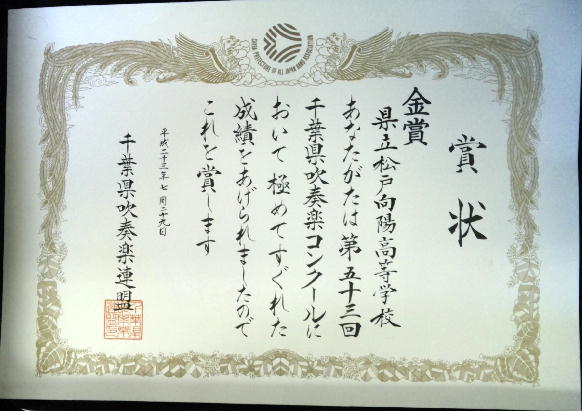 賞状
金賞
県立松戸向陽高等学校
あなたがたは第五十三回
千葉県吹奏楽コンクールに
おいて極めてすぐれた
成績をあげられましたので
これを賞します
平成二十三年七月二十九日
千葉県吹奏楽連盟